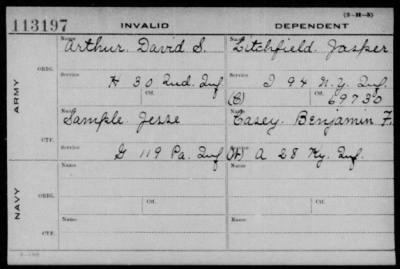 (3-H-8)
113197 INVALID DEPENDENT
ARMY
NAVY
ORIG.
CTF.
Name Name
Arthur. David S. Litchfield. Jasper
Service Service Ctf. Ctf.
H 30 Ind. Inf I 94 N.Y. Inf.
(C) 69730
Name Name
Sample. Jesse Casey. Benjamin F.
Service Service
G 119 Pa. Inf (W) A 28 Ky. Inf.
ORIG. Name Name
Service Ctf. Service Ctf.
CTF. Name Name
Service Service